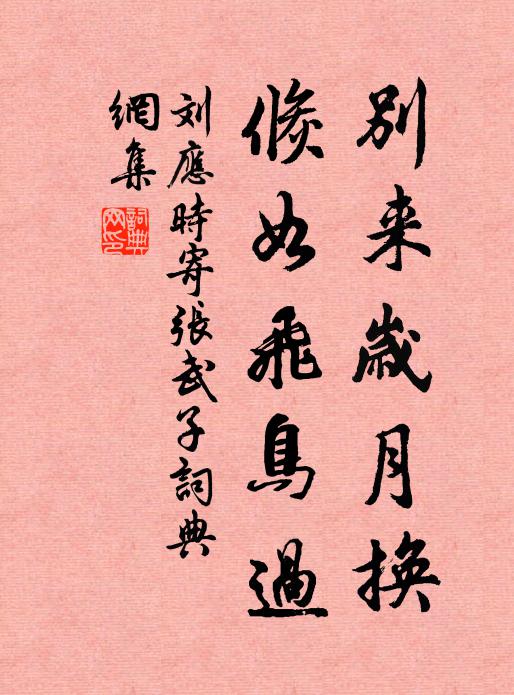 別来歲月換
倐如飛鳥過
刘應時寄張武子詞典
網集
詞典
网印